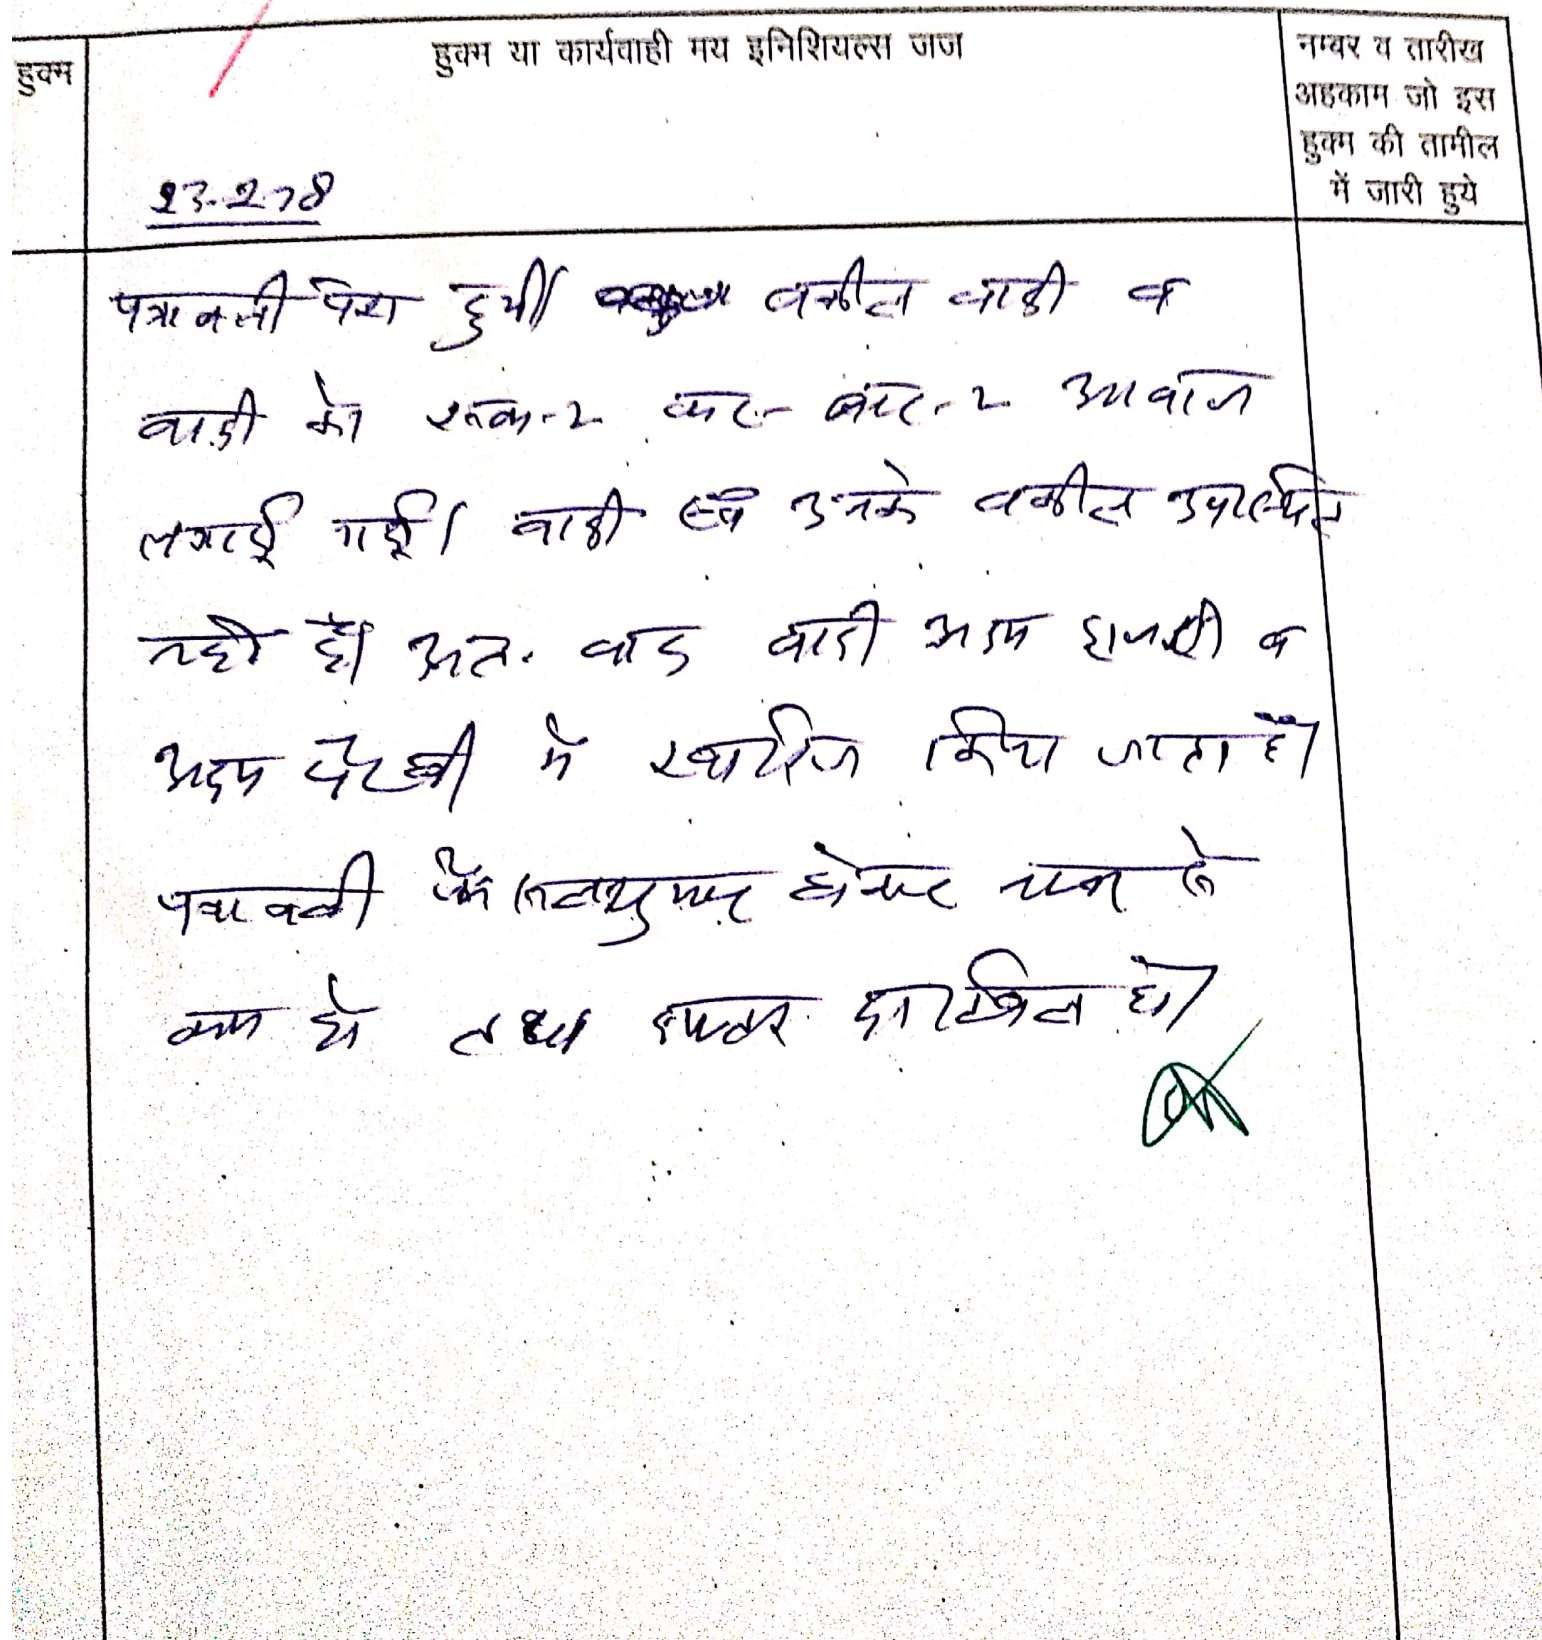 हुक्म
हुक्म या कार्यवाही मय इनिशियल्स जज
नम्बर व तारीख
अहकाम जो इस
हुक्म की तामील
में जारी हुये
पत्रावली पेश हुयी। वकील वादी व
वादी को रूक-२ कर बार-२ आवाज
लगाई गई। वादी एवं उनके वकील उपस्थित
नहीं है। अतः वाद वादी अदम हाजरी व
अदम पैरवी में खारिज किया जाता है।
पत्रावली फैसलशुमार होकर नम्बर से
कम हो तथा दफ्तर दाखिल हो।